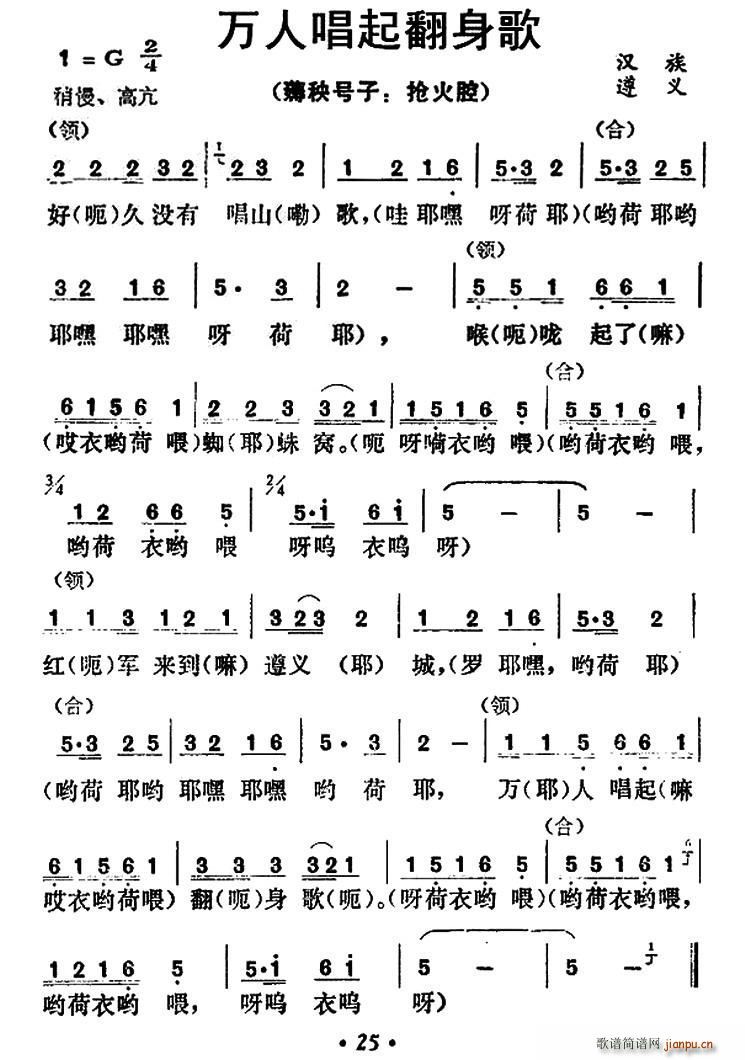 万人唱起翻身歌
1 = G 2/4
汉 族
稍慢、高亢
(薅秧号子:抢火腔)
遵 义
(领) (合)
2 2 2 3 2 | 2 3 2 | 1 2 1 6 | 5·3 2 | 5·3 2 5 |
好(呃)久没有 唱山(嘞)歌,(哇耶嘿 呀荷耶)(哟荷耶哟
(领)
3 2 1 6 | 5· 3 | 2 – | 5 5 1 6 6 1 |
耶嘿 耶嘿 呀 荷 耶), 喉(呃)咙 起了(嘛)
(合)
6 1 5 6 1 | 2 2 3 3 2 1 | 1 5 1 6 5 | 5 5 1 6 1 |
(哎衣哟荷 喂)蜘(耶)蛛 窝。(呃 呀嗬衣哟 喂)(哟荷衣哟 喂,
3/4 2/4
1 2 6 6 5 | 5·i 6 i | 5 – | 5 – |
哟荷 衣哟 喂 呀呜 衣呜 呀)
(领)
1 1 3 1 2 1 | 3 2 3 2 | 1 2 1 6 | 5·3 2 |
红(呃)军 来到(嘛)遵义 (耶) 城,(罗 耶嘿, 哟荷 耶)
(合) (领)
5·3 2 5 | 3 2 1 6 | 5· 3 | 2 – | 1 1 5 6 6 1 |
(哟荷 耶哟 耶嘿 耶嘿 哟 荷 耶, 万(耶)人 唱起(嘛
(合)
6 1 5 6 1 | 3 3 3 3 2 1 | 1 5 1 6 5 | 5 5 1 6 1 |
哎衣哟荷喂)翻(呃)身 歌(呃)。(呀荷衣哟 喂)(哟荷衣哟喂,
1 2 1 6 5 | 5·i 6 i | 5 – | 5 – ‖
哟荷衣哟 喂, 呀呜 衣呜 呀)
· 25 ·
歌谱简谱网 jianpu.cn